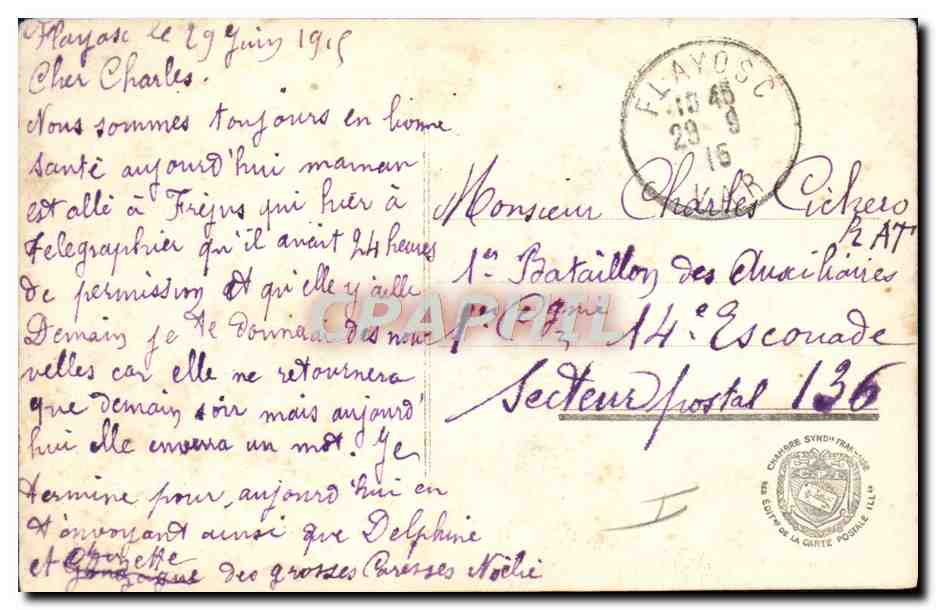 Flayosc le 29 Juin 1915
Cher Charles.
Nous sommes toujours en bonne
santé aujourd'hui maman
est allé à Fréjus qui hier à
telegraphier qu'il avait 24 heures
de permission et qu'elle y aille
Demain je te donnerai des nou
velles car elle ne retournera
que demain soir mais aujourd'
hui elle enverra un mot. Je
termine pour aujourd'hui en
t'envoyant ainsi que Delphine
et des grosses Caresses Noélie
FLAYOSC
15 45
29 9
15
VAR
Monsieur Charles Cickero
RAT
1er Bataillon des Auxiliaires
1re Cgnie 14e Escouade
Secteur postal 136
CHAMBRE SYNDle FRANÇAISE
DES EDITrs DE LA CARTE POSTALE ILLée
CPAPHIL